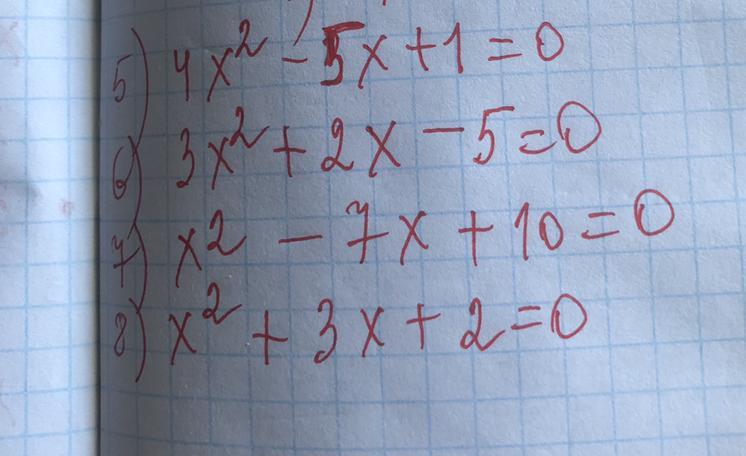 5) 4x² - 5x + 1 = 0
6) 3x² + 2x - 5 = 0
7) x² - 7x + 10 = 0
8) x² + 3x + 2 = 0